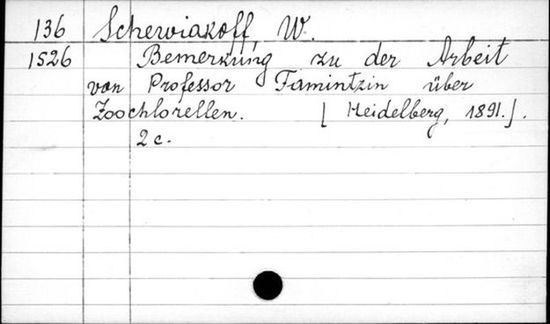 136 Schewiakoff, W.
1526 Bemerkung zu der Arbeit
von Professor Famintzin über
Zoochlorellen. [Heidelberg, 1891.].
2 c.